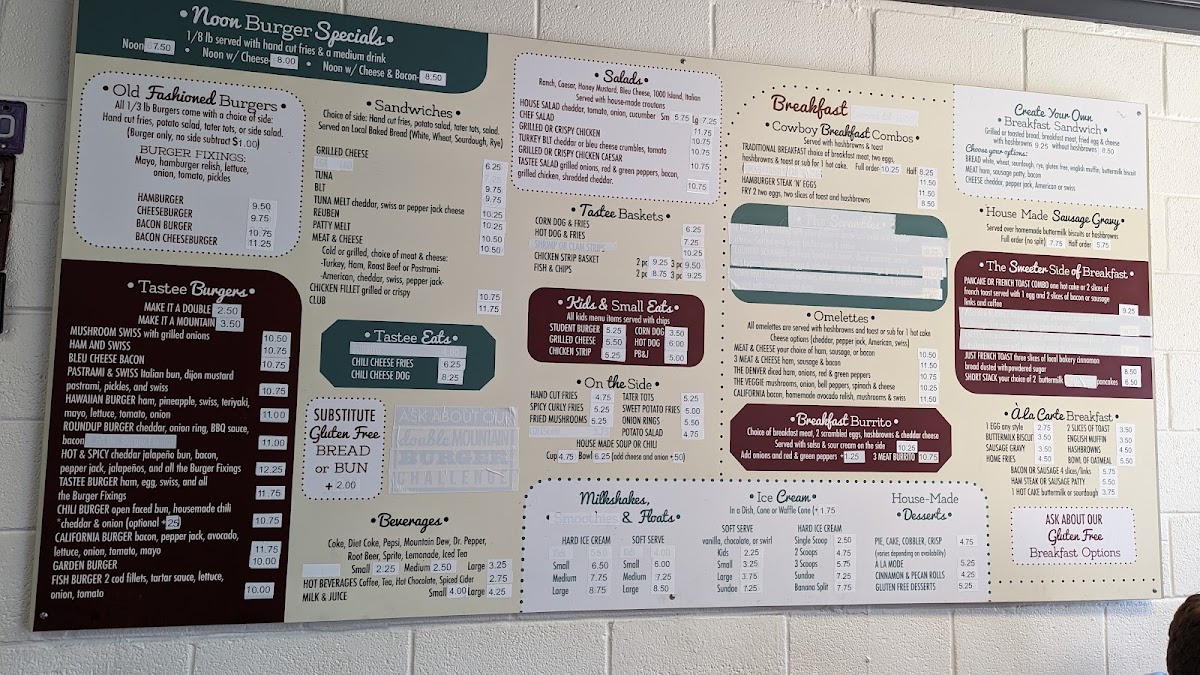 • Noon Burger Specials •
1/8 lb served with hand cut fries & a medium drink
Noon- 7.50 • Noon w/ Cheese- 8.00 • Noon w/ Cheese & Bacon- 8.50
• Old Fashioned Burgers •
All 1/3 lb Burgers come with a choice of side:
Hand cut fries, potato salad, tater tots, or side salad.
(Burger only, no side subtract $1.00)
BURGER FIXINGS:
Mayo, hamburger relish, lettuce,
onion, tomato, pickles
HAMBURGER 9.50
CHEESEBURGER 9.75
BACON BURGER 10.75
BACON CHEESEBURGER 11.25
• Tastee Burgers •
MAKE IT A DOUBLE 2.50
MAKE IT A MOUNTAIN 3.50
MUSHROOM SWISS with grilled onions 10.50
HAM AND SWISS 10.75
BLEU CHEESE BACON 10.75
PASTRAMI & SWISS Italian bun, dijon mustard
pastrami, pickles, and swiss 10.75
HAWAIIAN BURGER ham, pineapple, swiss, teriyaki,
mayo, lettuce, tomato, onion 11.00
ROUNDUP BURGER cheddar, onion ring, BBQ sauce,
bacon 11.00
HOT & SPICY cheddar jalapeño bun, bacon,
pepper jack, jalapeños, and all the Burger Fixings 12.25
TASTEE BURGER ham, egg, swiss, and all
the Burger Fixings 11.75
CHILI BURGER open faced bun, housemade chili
*cheddar & onion (optional +25) 10.75
CALIFORNIA BURGER bacon, pepper jack, avocado,
lettuce, onion, tomato, mayo 11.75
GARDEN BURGER 10.00
FISH BURGER 2 cod fillets, tartar sauce, lettuce,
onion, tomato 10.00
• Sandwiches •
Choice of side: Hand cut fries, potato salad, tater tots, salad.
Served on Local Baked Bread (White, Wheat, Sourdough, Rye)
GRILLED CHEESE 6.25
TUNA 9.75
BLT 9.75
TUNA MELT cheddar, swiss or pepper jack cheese
REUBEN 10.25
PATTY MELT 10.25
MEAT & CHEESE 10.50
Cold or grilled, choice of meat & cheese: 10.50
-Turkey, Ham, Roast Beef or Pastrami-
-American, cheddar, swiss, pepper jack-
CHICKEN FILLET grilled or crispy 10.75
CLUB 11.75
• Tastee Eats •
CHILI CHEESE FRIES 6.25
CHILI CHEESE DOG 8.25
SUBSTITUTE
Gluten Free
BREAD
or BUN
+ 2.00
ASK ABOUT OUR
double MOUNTAIN
BURGER
CHALLENGE
• Beverages •
Coke, Diet Coke, Pepsi, Mountain Dew, Dr. Pepper,
Root Beer, Sprite, Lemonade, Iced Tea
Small 2.25 Medium 2.50 Large 3.25
HOT BEVERAGES Coffee, Tea, Hot Chocolate, Spiced Cider 2.75
MILK & JUICE Small 4.00 Large 4.25
• Salads •
Ranch, Caesar, Honey Mustard, Bleu Cheese, 1000 Island, Italian
Served with house-made croutons
HOUSE SALAD cheddar, tomato, onion, cucumber Sm 5.75 Lg 7.25
CHEF SALAD 11.75
GRILLED OR CRISPY CHICKEN 10.75
TURKEY BLT cheddar or bleu cheese crumbles, tomato 10.75
GRILLED OR CRISPY CHICKEN CAESAR 10.75
TASTEE SALAD grilled onions, red & green peppers, bacon,
grilled chicken, shredded cheddar. 10.75
• Tastee Baskets •
CORN DOG & FRIES 6.25
HOT DOG & FRIES 7.25
SHRIMP OR CLAM STRIPS 10.25
CHICKEN STRIP BASKET 2 pc 9.25 3 pc 9.50
FISH & CHIPS 2 pc 8.75 3 pc 9.25
• Kids & Small Eats •
All kids menu items served with chips
STUDENT BURGER 5.25 CORN DOG 3.50
GRILLED CHEESE 5.25 HOT DOG 6.00
CHICKEN STRIP 5.25 PB&J 5.00
• On the Side •
HAND CUT FRIES 4.75 TATER TOTS 5.25
SPICY CURLY FRIES 5.25 SWEET POTATO FRIES 5.00
FRIED MUSHROOMS 5.25 ONION RINGS 5.50
POTATO SALAD 4.75
HOUSE MADE SOUP OR CHILI
Cup 4.75 Bowl 6.25 (add cheese and onion +.50)
Milkshakes,
Smoothies & Floats •
HARD ICE CREAM SOFT SERVE
Small 6.50 Small 6.00
Medium 7.75 Medium 7.25
Large 8.75 Large 8.50
• Ice Cream •
In a Dish, Cone or Waffle Cone (+ 1.75
SOFT SERVE
vanilla, chocolate, or swirl
Kids 2.25
Small 3.25
Large 3.75
Sundae 7.25
HARD ICE CREAM
Single Scoop 2.50
2 Scoops 4.75
3 Scoops 5.75
Sundae 7.25
Banana Split 7.75
House-Made
• Desserts •
PIE, CAKE, COBBLER, CRISP 4.75
(varies depending on availability)
A LA MODE 5.25
CINNAMON & PECAN ROLLS 4.25
GLUTEN FREE DESSERTS 5.25
Breakfast
• Cowboy Breakfast Combos •
Served with hashbrowns & toast
TRADITIONAL BREAKFAST choice of breakfast meat, two eggs,
hashbrowns & toast or sub for 1 hot cake. Full order- 10.25 Half 8.25
11.50
HAMBURGER STEAK 'N' EGGS 11.50
FRY 2 two eggs, two slices of toast and hashbrowns 8.50
• The Scrambles •
• Omelettes •
All omelettes are served with hashbrowns and toast or sub for 1 hot cake
Cheese options (cheddar, pepper jack, American, swiss)
MEAT & CHEESE your choice of ham, sausage, or bacon 10.50
3 MEAT & CHEESE ham, sausage & bacon 11.50
THE DENVER diced ham, onions, red & green peppers 10.75
THE VEGGIE mushrooms, onion, bell peppers, spinach & cheese 10.25
CALIFORNIA bacon, homemade avocado relish, mushrooms & swiss 11.50
• Breakfast Burrito •
Choice of breakfast meat, 2 scrambled eggs, hashbrowns & cheddar cheese
Served with salsa & sour cream on the side 10.25
Add onions and red & green peppers + 1.25 3 MEAT BURRITO 10.75
Create Your Own
• Breakfast Sandwich •
Grilled or toasted bread, breakfast meat, fried egg & cheese
with hashbrowns 9.25 without hashbrowns 8.50
Choose your options:
BREAD white, wheat, sourdough, rye, gluten free, english muffin, buttermilk biscuit
MEAT ham, sausage patty, bacon
CHEESE cheddar, pepper jack, American or swiss
• House Made Sausage Gravy •
Served over homemade buttermilk biscuits or hashbrowns
Full order (no split) 7.75 Half order 5.75
• The Sweeter Side of Breakfast •
PANCAKE OR FRENCH TOAST COMBO one hot cake or 2 slices of
french toast served with 1 egg and 2 slices of bacon or sausage
links and coffee 9.25
JUST FRENCH TOAST three slices of local bakery cinnamon
bread dusted with powdered sugar 8.50
SHORT STACK your choice of 2 buttermilk pancakes 6.50
• À la Carte Breakfast •
1 EGG any style 2.75 2 SLICES OF TOAST 3.50
BUTTERMILK BISCUIT 3.50 ENGLISH MUFFIN 3.50
SAUSAGE GRAVY 3.50 HASHBROWNS 4.50
HOME FRIES 4.50 BOWL OF OATMEAL 5.50
BACON OR SAUSAGE 4 slices/links 5.75
HAM STEAK OR SAUSAGE PATTY 5.50
1 HOT CAKE buttermilk or sourdough 3.75
ASK ABOUT OUR
Gluten Free
Breakfast Options